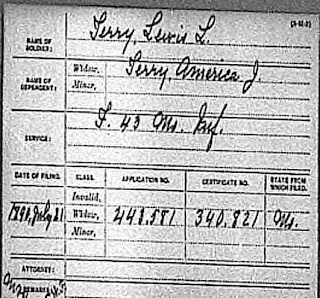 (3-402)
NAME OF SOLDIER: Terry, Lewis L.
NAME OF DEPENDENT: Widow, Terry, America J.
Minor,
SERVICE: F. 43 Mo. Inf.
DATE OF FILING. CLASS. APPLICATION NO. CERTIFICATE NO. STATE FROM WHICH FILED.
Invalid,
1890, July 21 Widow, 448.581 340.821 Mo.
Minor,
ATTORNEY:
REMARKS: